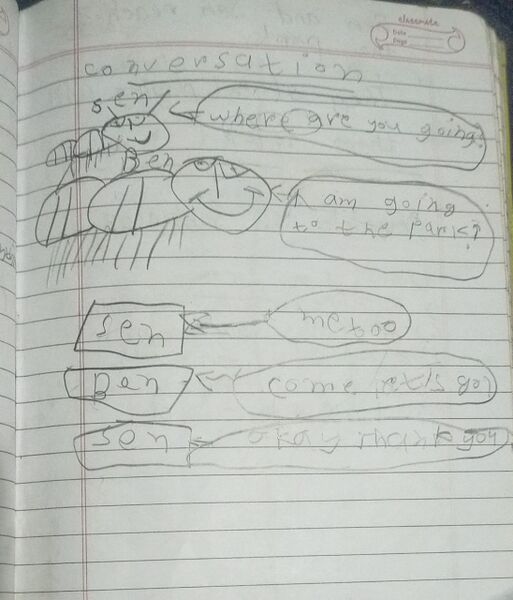 classmate
Date
Page
conversation
sen
where are you going?
Ben
I am going
to the park?
sen
me too
Ben
come let's go
sen
okay thank you